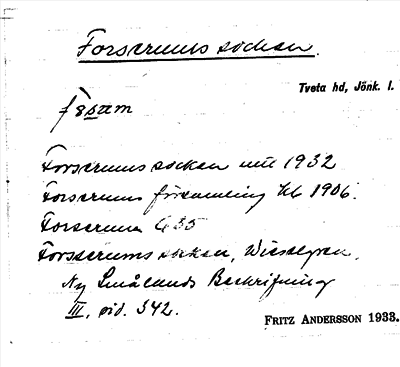 Forserums socken.
Tveta hd, Jönk. l.
Forserums socken 1932
Forserums församling Kb 1906.
Forserum G 35
Forserums socken, Wieselgren,
Ny Smålands Beskrifning
III, sid. 342.
FRITZ ANDERSSON 1933.